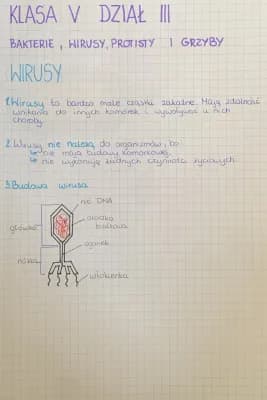 KLASA V DZIAŁ III
BAKTERIE, WIRUSY, PROTISTY I GRZYBY
WIRUSY
1. Wirusy to bardzo małe cząstki zakaźne. Mają zdolność
wnikania do innych komórek i wywoływać u nich
choroby.
2. Wirusy nie należą do organizmów, bo
↳ nie mają budowy komórkowej,
↳ nie wykonują żadnych czynności życiowych.
3. Budowa wirusa
nić DNA
otoczka
białkowa
główka
ogonek
nóżka
włókienka